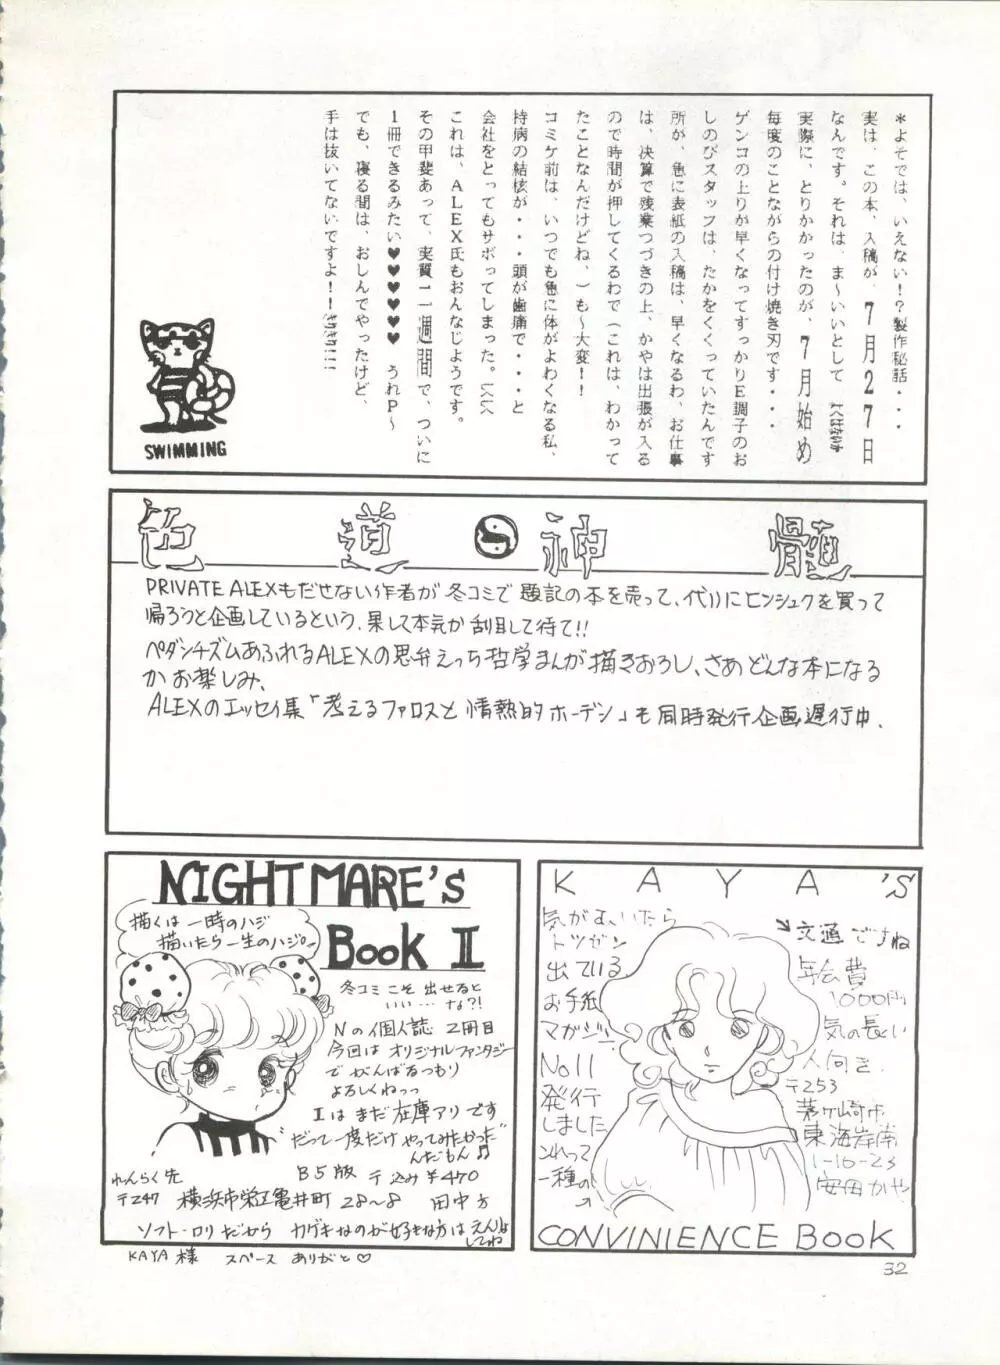 ＊よそでは、いえない！？製作秘話・・・
実は、この本、入稿が、７月２７日
なんです。それは、ま〜いいとして
実際に、とりかかったのが、７月始め
毎度のことながらの付け焼き刃です・・・
ゲンコの上りが早くなってすっかりＥ調子のお
しのびスタッフは、たかをくくっていたんです
所が、急に表紙の入稿は、早くなるわ、お仕事
は、決算で残業つづきの上、かやは出張が入る
ので時間が押してくるわで（これは、わかって
たことなんだけどね、）も〜大変！！
コミケ前は、いつでも急に体がよわくなる私、
持病の結核が・・・頭が歯痛で・・・と
会社をとってもサボってしまった。くくく
これは、ＡＬＥＸ氏もおんなじようです。
その甲斐あって、実質一１週間で、ついに
１冊できるみたい♥♥♥♥♥ うれＰ〜
でも、寝る間は、おしんでやったけど、
手は抜いてないですよ！！
SWIMMING
色道☯神髄
PRIVATE ALEXもだせない作者が冬コミで題記の本を売って、代りにヒンシュクを買って
帰ろうと企画しているという、果して本気か刮目して待て!!
ペダンチズムあふれるALEXの思弁えっち哲学まんが描きおろし、さあどんな本になる
かお楽しみ、
ALEXのエッセイ集「考えるファロスと情熱的ホーデン」も同時発行企画遅行中.
NIGHTMARE'S
Book II
描くは一時のハジ
描いたら一生のハジ。
冬コミこそ出せると
いい…な?!
Nの個人誌 2冊目
今回はオリジナルファンタジー
でがんばるつもり
よろしくねっっ
Iはまだ在庫アリです
"だって一度だけやってみたかった"
んだもん♫
B5版 〒込み¥470
れんらく先
〒247 横浜市栄区亀井町28〜8 田中方
ソフト・ロリだから カゲキなのが好きな方はえんりょ
してね
KAYA様 スペース ありがと♡
KAYA'S
気がむいたら
トツゼン
出ている
お手紙
マガジン.
No11
発行
しました
これって
一種の
文通ですね
年会費
1000円
気の長い
人向き.
〒253
茅ヶ崎市
東海岸南
1-16-23
安田かや
CONVINIENCE BOOK
32